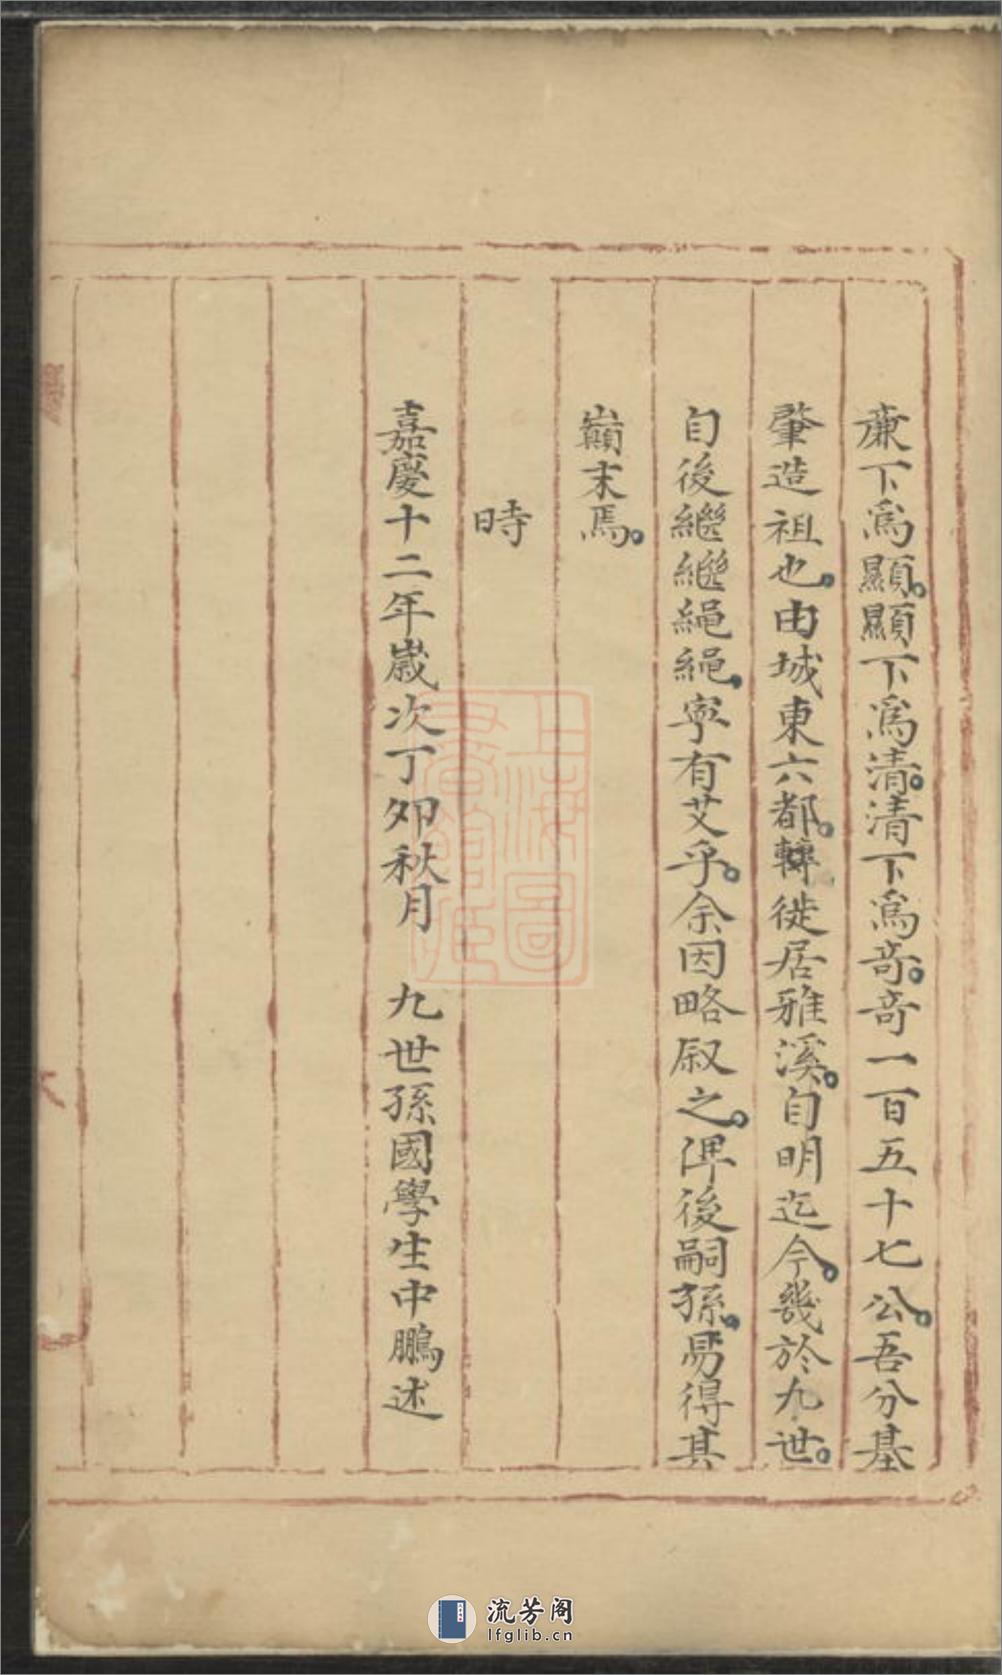 廉下爲顯。顯下爲清。清下爲奇。奇一百五十七公。吾分基
肇造祖也。由城東六都。轉徙居雅溪。自明迄今。幾於九世。
自後繼繼繩繩。寧有艾乎。余因略叙之。俾後嗣孫。易得其
巔末焉。
時
嘉慶十二年歲次丁卯秋月 九世孫國學生中鵬述
上海圖書館藏
流芳阁
lfglib.cn